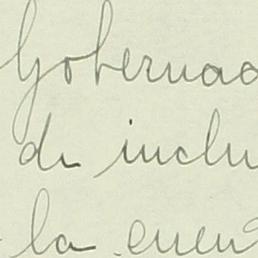 Gobernad
de inclu
la cuen